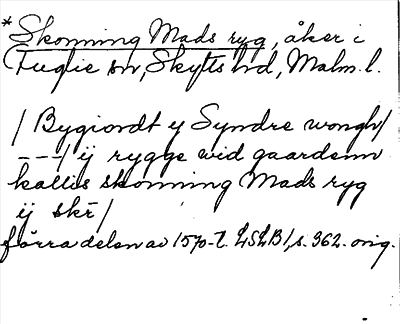 *Skonning Mads ryg, åker i
Fuglie sn, Skytts hd, Malm. l.
/ Bygiordt y Syndre wongh/
---/ ij rygge wid gaardenn
kallis skonning Mads ryg
ij skr̄ /
förra delen av 1570-t. LSLB/, s. 362. orig.